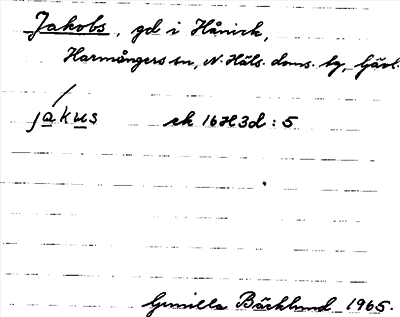 Jakobs, gd i Hånick,
Harmångers sn, N. Häls. doms. tg, Gävl.
jakus ek 16H3d : 5
Gunilla Bäcklund 1965.